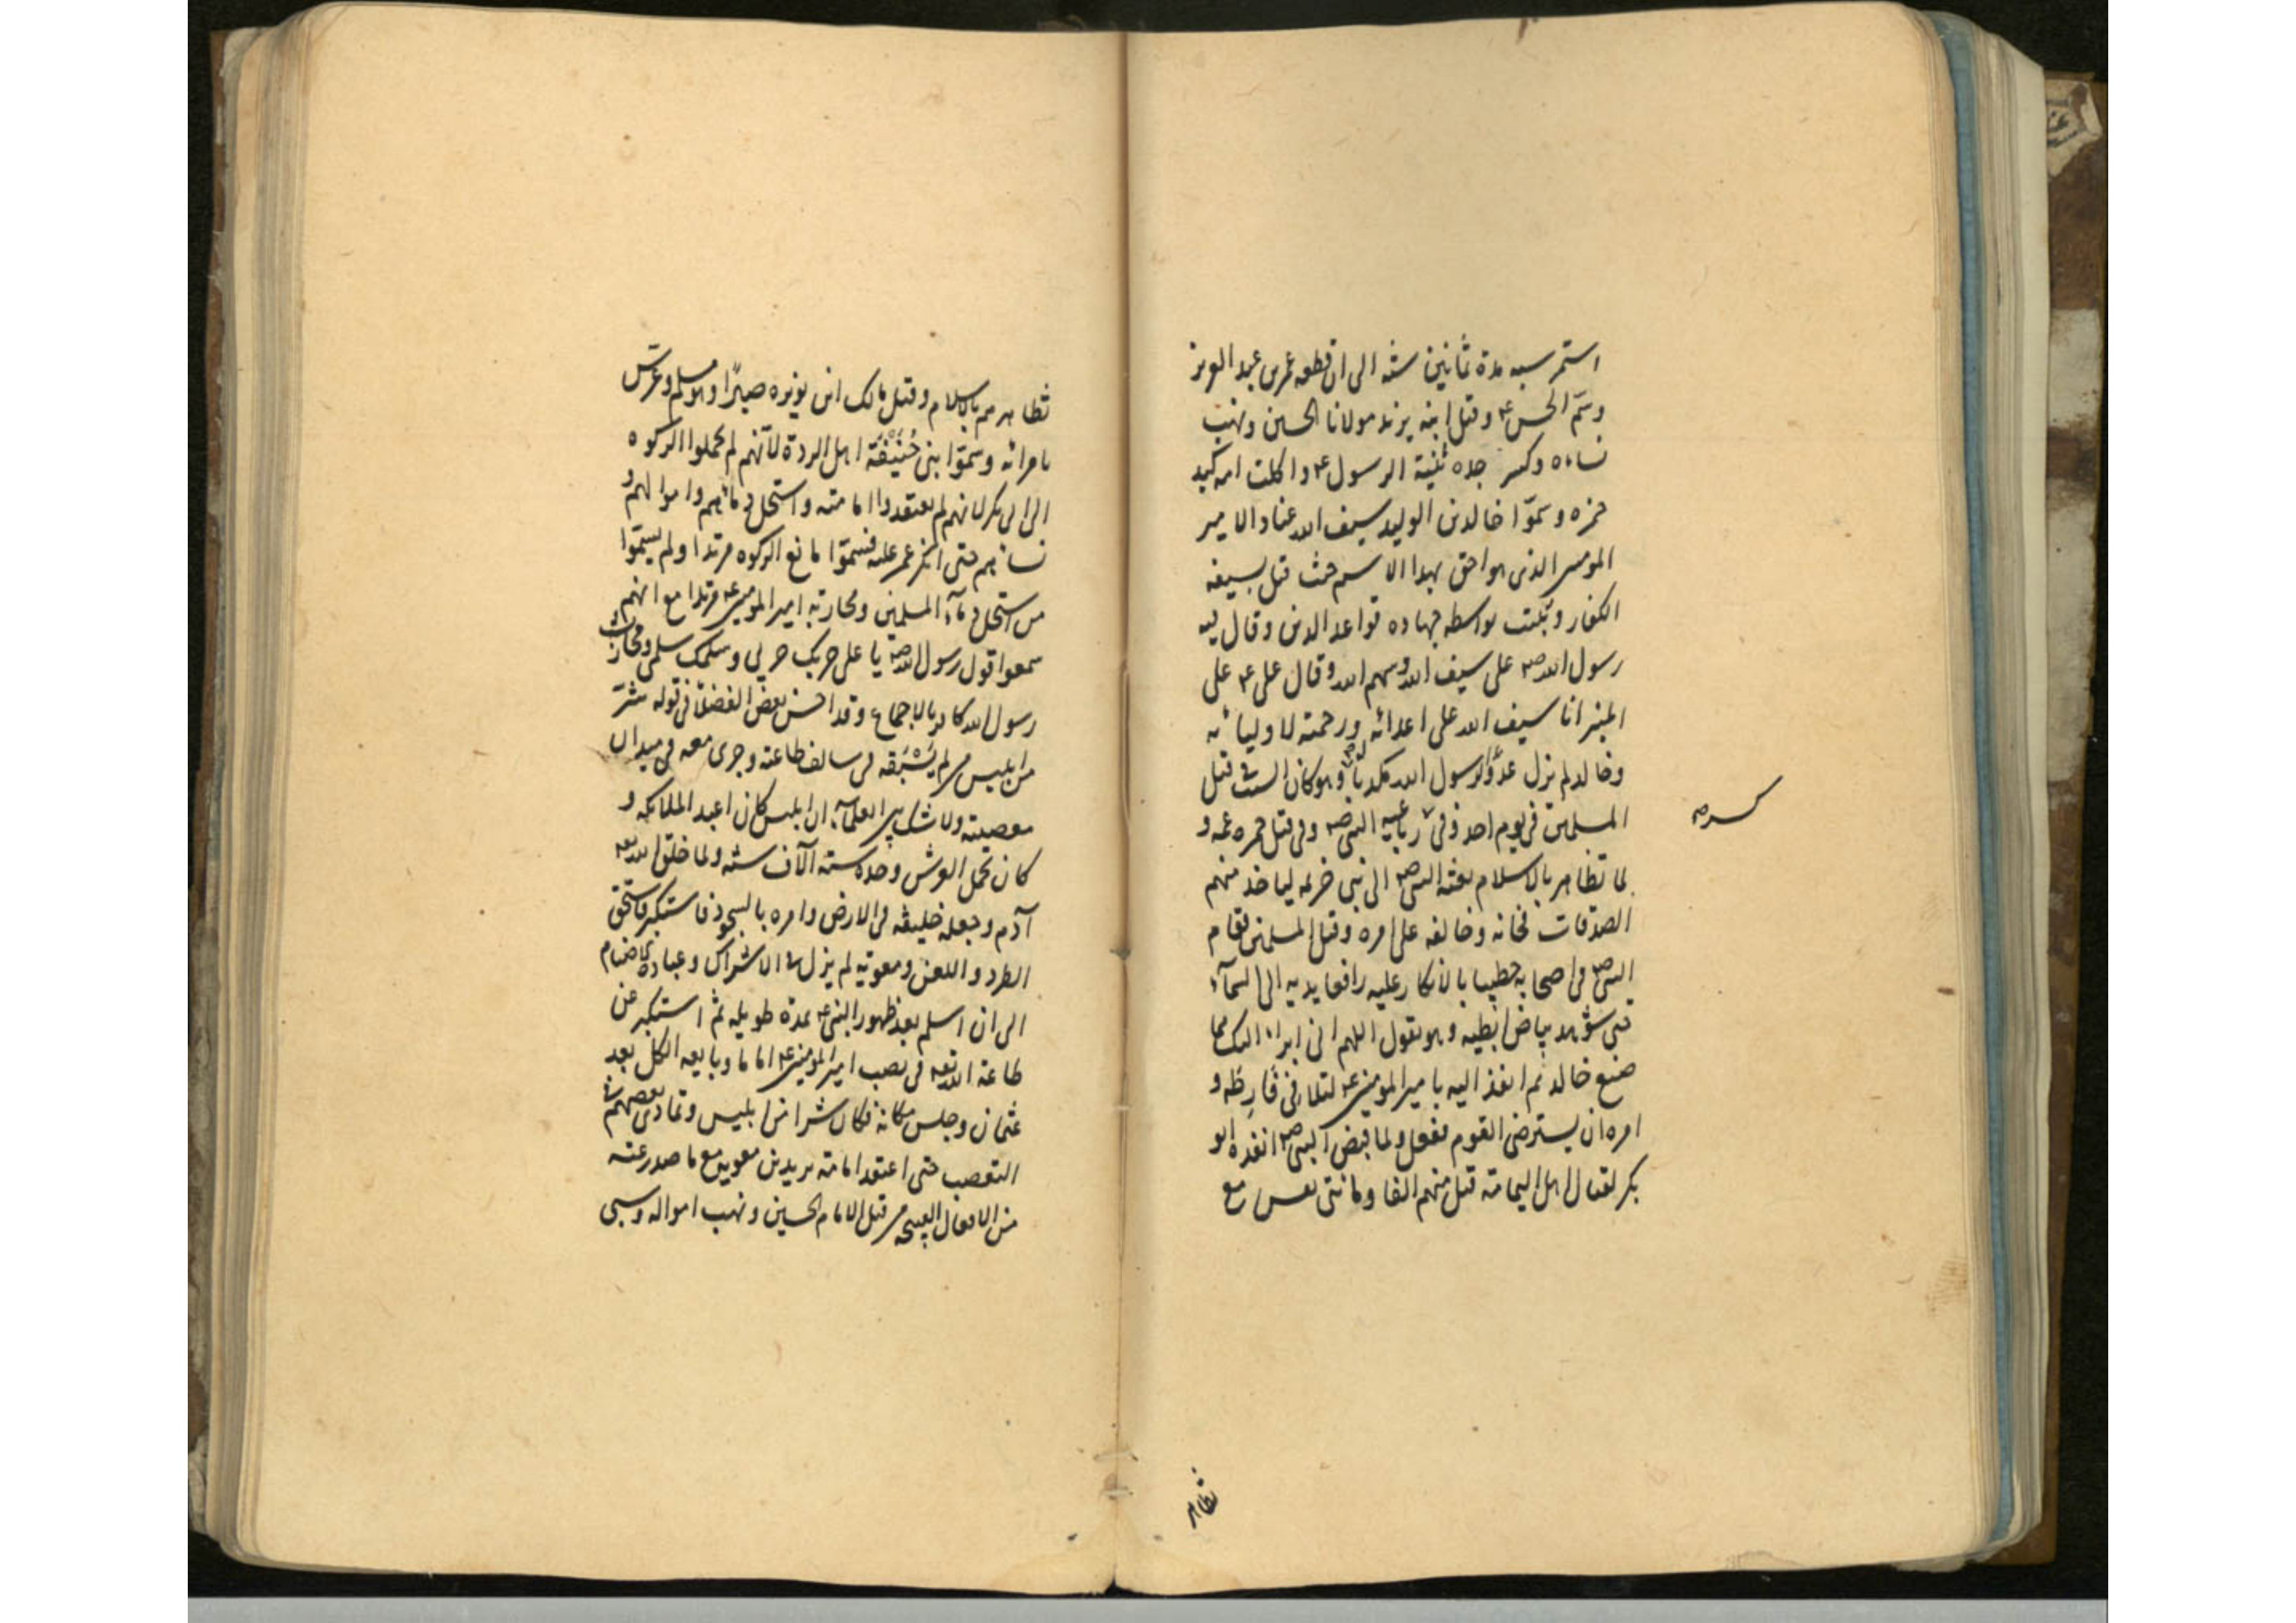 استمر سبه مدة ثمانين سنة الى ان قطعه عمر بن عبد العزيز
وسمّ الحسن ع وقتل ابنه يزيد مولانا الحسين ونهب
نساءه وكسر جده ثنية الرسول ع واكلت امه كبد
حمزه وسمّوا خالد بن الوليد سيف الله عنادا لامير
المومنين الذى هو احق بهذا الاسم حيث قتل بسيفه
الكفار وثبتت بواسطه جهاده قواعد الدين وقال فيه
رسول الله ص على سيف الله وسهم الله وقال على ع على
المنبر انا سيف الله على اعدائه ورحمته لاوليائه
وخالد لم يزل عدوّا لرسول الله مكذبا له وهو كان السبب فى قتل
المسلمين فى يوم احد وفى كسر رباعية النبى ص وفى قتل حمزه عمه و
لما تظاهر بالاسلام بعثه النبى ص الى بنى خزيمه لياخذ منهم
الصدقات فخانه وخالفه على امره وقتل المسلمين فقام
النبى ص فى اصحابه خطيبا بالانكار عليه رافعا يديه الى السمآء
حتى شوهد بياض ابطيه وهو يقول اللهم انى ابراء اليك مما
صنع خالد ثم انفذ اليه بامير المومنين ع لتلافى فارطه و
امره ان يسترضى القوم ففعل ولما قبض النبى ص انفذه ابو
بكر لقتال اهل اليمامة قتل منهم الفا ومائتى نفس مع
تظاهر
تظاهرهم بالاسلام وقتل مالك ابن نويره صبرًا وهو مسلم وعرّس
بامراته وسمّوا بنى حُنَيْفَة اهل الردة لانّهم لم يحملوا الزكوه
الى ابى بكر لانهم لم يعتقدوا امامته واستحل دمائهم واموالهم و
نسائهم حتى انكر عمر عليه فسمّوا مانع الزكوه مرتدا ولم يسمّوا
من استحل دمآء المسلمين ومحاربة امير المومنين ع مرتدا مع انهم
سمعوا قول رسول الله ص يا على حربك حربى وسلمك سلمى ومحارب
رسول الله كافر بالاجماع وقد احسن بعض الفضلا فى قوله شرّ
من ابليس من لم يَسْبَقه فى سالف طاعته وجرى معه فى ميدان
معصيته ولا شك بين العلمآء ان ابليس كان اعبد الملائكه و
كان يحمل العرش وحده ستة آلاف سنه ولما خلق الله تعه
آدم وجعله خليفه فى الارض وامره بالسجود فاستكبر فاستحق
الطرد واللعن ومعويه لم يزل فى الاشراك وعبادة الاصنام
الى ان اسلم بعد ظهور النبى ع بمدة طويله ثم استكبر عن
طاعة الله تعه فى نصب امير المومنين ع اماما وبايعه الكل بعد
عثمان وجلس مكانه فكان شرا من ابليس وتمادى بعضهم فى
التعصب حتى اعتقد امامة يزيد بن معويه مع ما صدر عنه
من الافعال القبيحه من قتل الامام الحسين ونهب امواله وسبى